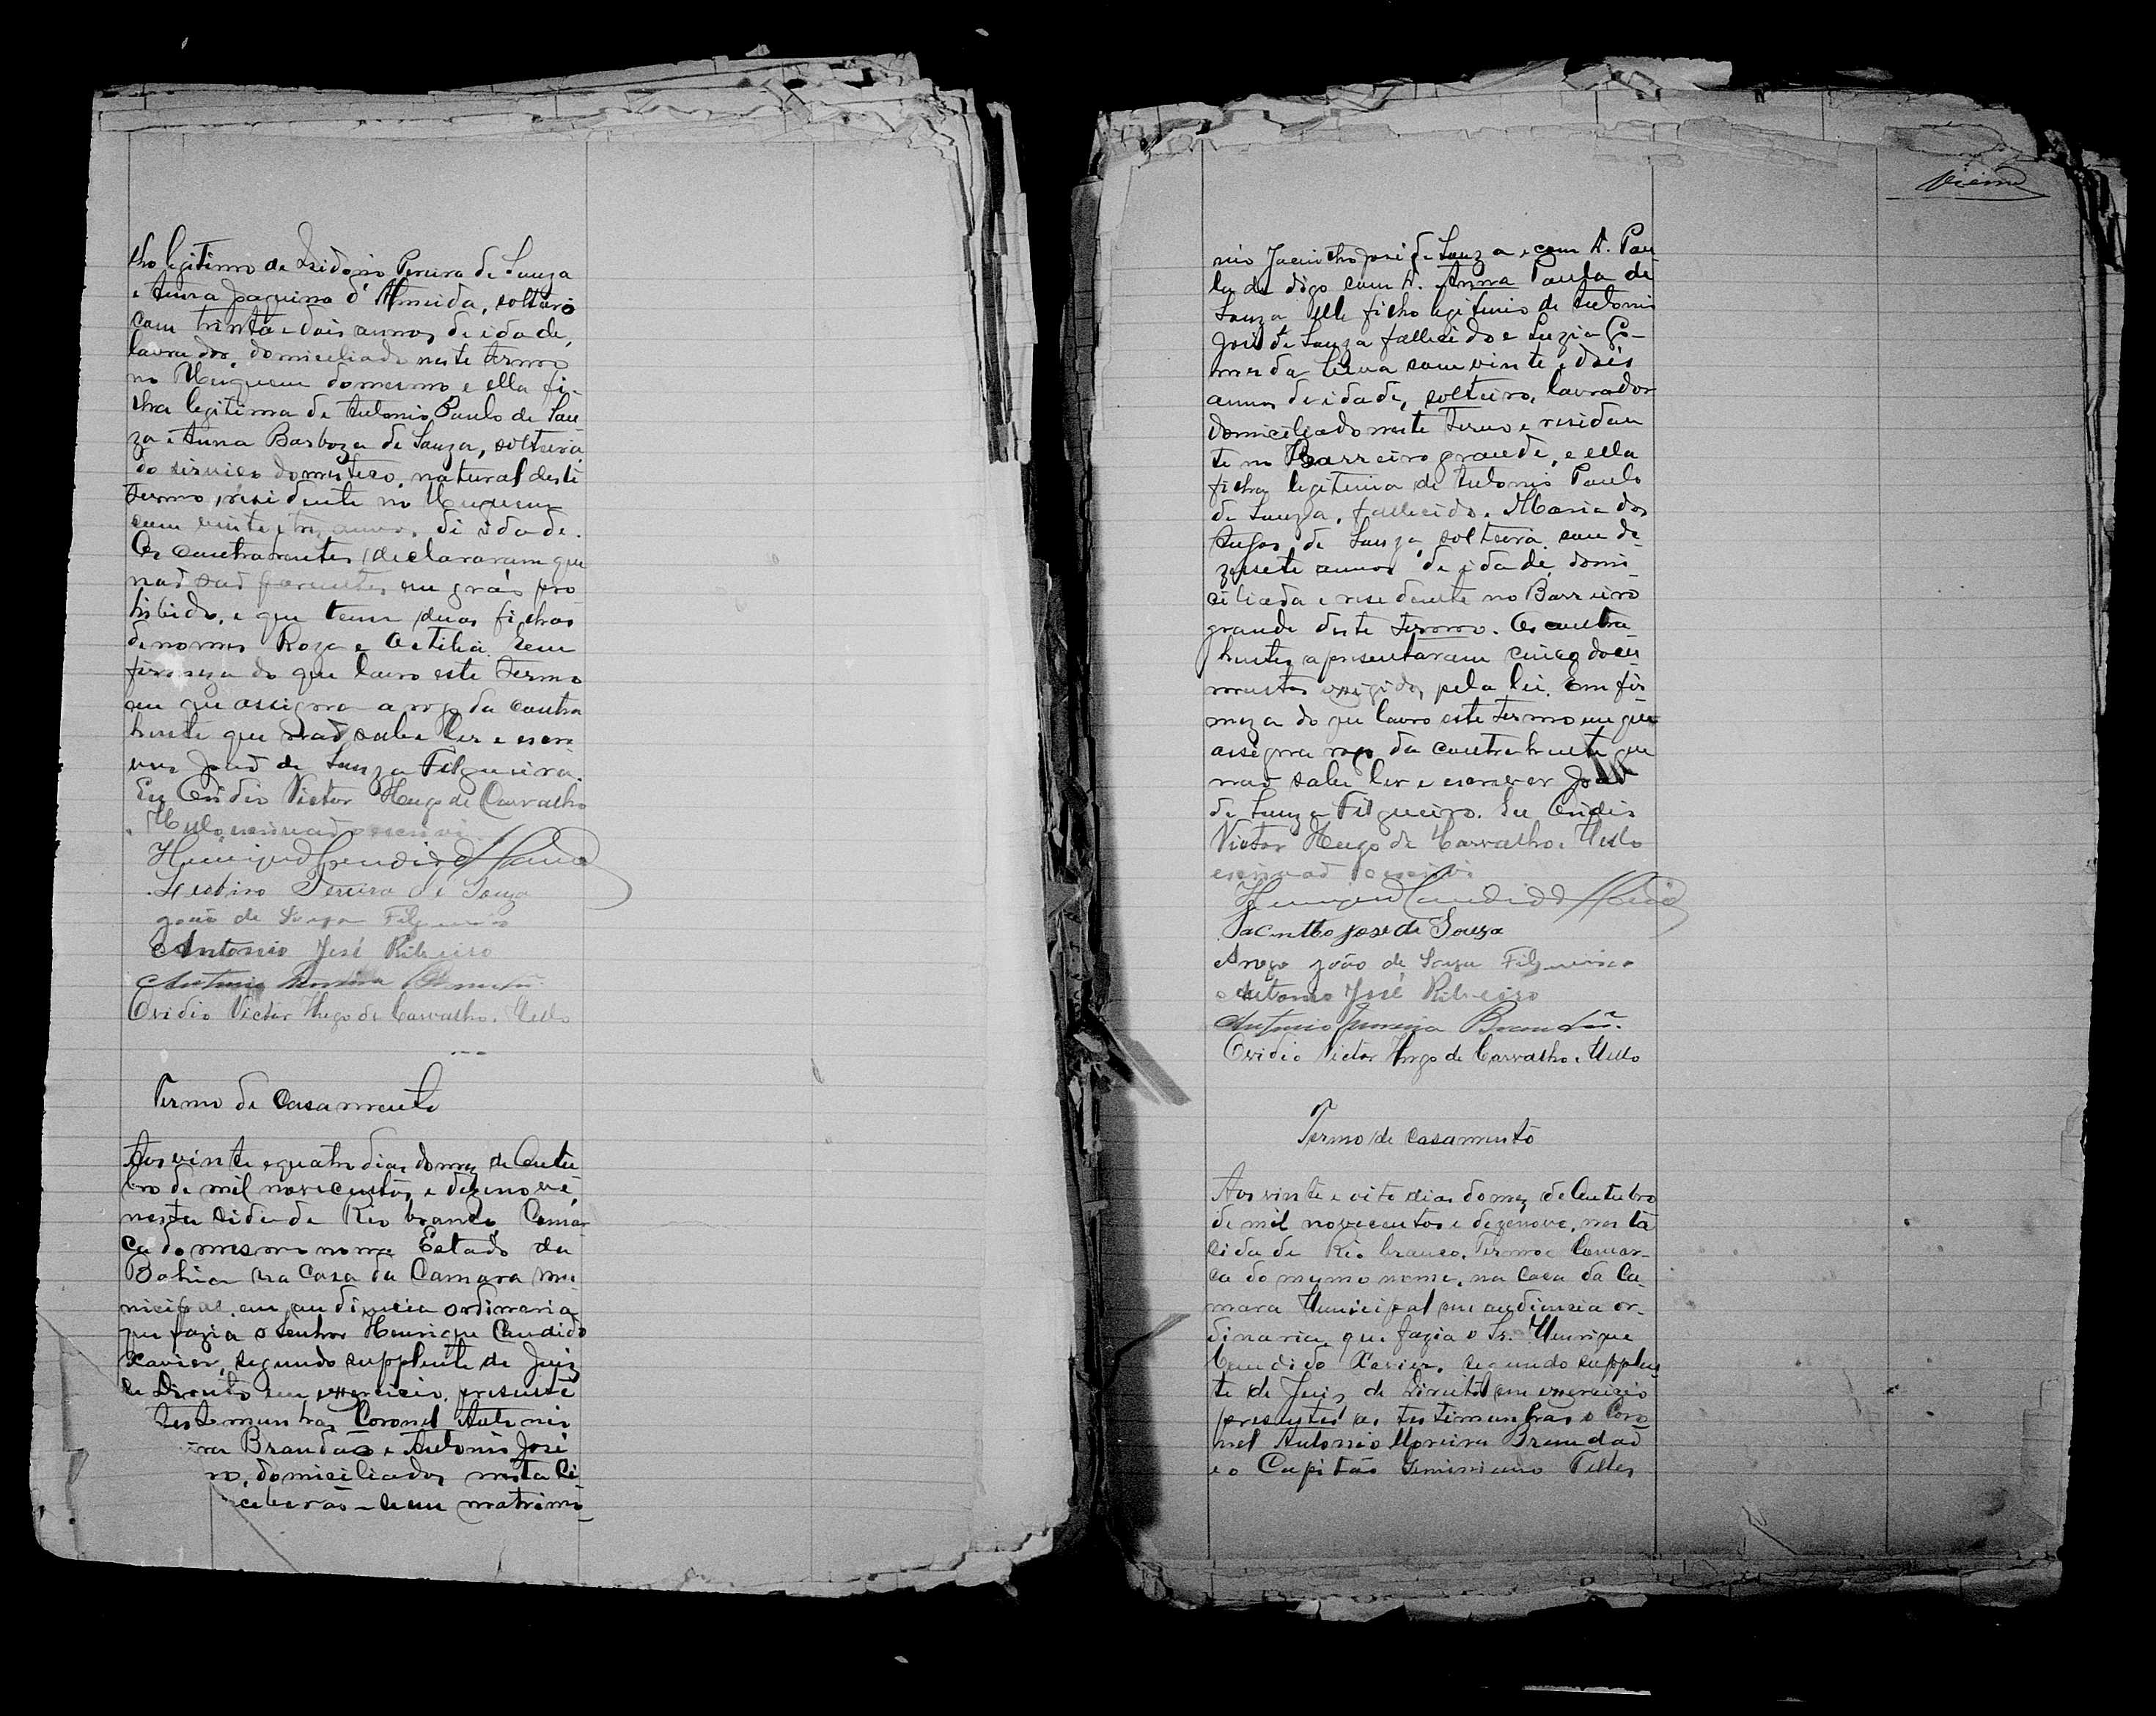 lho legitimo de Isidorio Pereira de Souza
e Anna Joaquina d'Almeida, solteiro
com trinta e dois annos de idade,
lavrador domiciliado neste termo
no do mesmo e ella fi-
lha legitima de Antonio Paulo de Sou-
za e Anna Barboza de Souza, solteira
do serviço domestico, natural deste
termo, residente no
com vinte e tres annos de idade.
Os contrahentes declararam que
naõ saõ parentes em gráo pro
hibido, e que tem duas filhas
de nomes Roza e Otilia. Em
firmeza do que lavro este termo
em que assigna a rogo da contra
hente que naõ sabe ler e escre
ver Joaõ de Souza Filgueira.
Eu Ovidio Victor Hugo de Carvalho
Mello, escrivaõ o escrevi.
Henrique Candido Xavier
Pereira de Souza
João de Souza Filgueira
Antonio José Ribeiro
Antonio Moreira Brandaõ
Ovidio Victor Hugo de Carvalho e Mello
Termo de Casamento
Aos vinte e quatro dias do mez de Outu
bro de mil novecentos e dezenove,
nesta Cidade de Rio branco, Comar
ca do mesmo nome Estado da
Bahia na Casa da Camara mu
nicipal, em audiencia ordinaria
que fazia o Senhor Henrique Candido
Xavier, segundo supplente de Juiz
de Direito em exercicio, presente
testemunhas Coronel Antonio
ira Brandaõ e Antonio José
ro, domiciliados nesta Ci
ceberaõ-se em matrimo-
Vieira
nio Jacintho José de Souza e com D. Pau-
la de digo com D. Anna Paula de
Souza elle filho legitimo de Antonio
José de Souza fallecido e Luzia Go-
mes da Silva com vinte e dois
annos de idade, solteiro, lavrador
domiciliado neste termo e residen
te no Barreiro grande, e ella
filha legitima de Antonio Paulo
de Souza, fallecido e Maria dos
Anjos de Souza solteira com de
zesete annos de idade, domi-
ciliada e residente no Barreiro
grande deste termo. Os contra-
hentes apresentaram cinco docu-
mentos exigidos pela lei. Em fir
meza do que lavro este termo em que
assigna rogo da contrahente que
naõ sabe ler e escrever Joaõ
de Souza Filgueira. Eu Ovidio
Victor Hugo de Carvalho e Mello
escrivaõ o escrevi
Henrique Candido Xavier
Jacintho José de Souza
A rogo João de Souza Filgueira
Antonio José Ribeiro
Antonio Moreira Brandaõ.
Ovidio Victor Hugo de Carvalho e Mello
Termo de casamento
Aos vinte e oito dias do mez de Outubro
de mil novecentos e dezenove, nesta
cidade Rio branco, Termo e Comar-
ca do mesmo nome, na Casa da Ca-
mara Municipal em audiencia or-
dinaria, que fazia o Sr. Henrique
Candido Xavier, segundo supplen
te de Juiz de Direito em exercicio
presentes as testimunhas o Coro
nel Antonio Moreira Brandaõ
e o Capitão Geminiano Telles